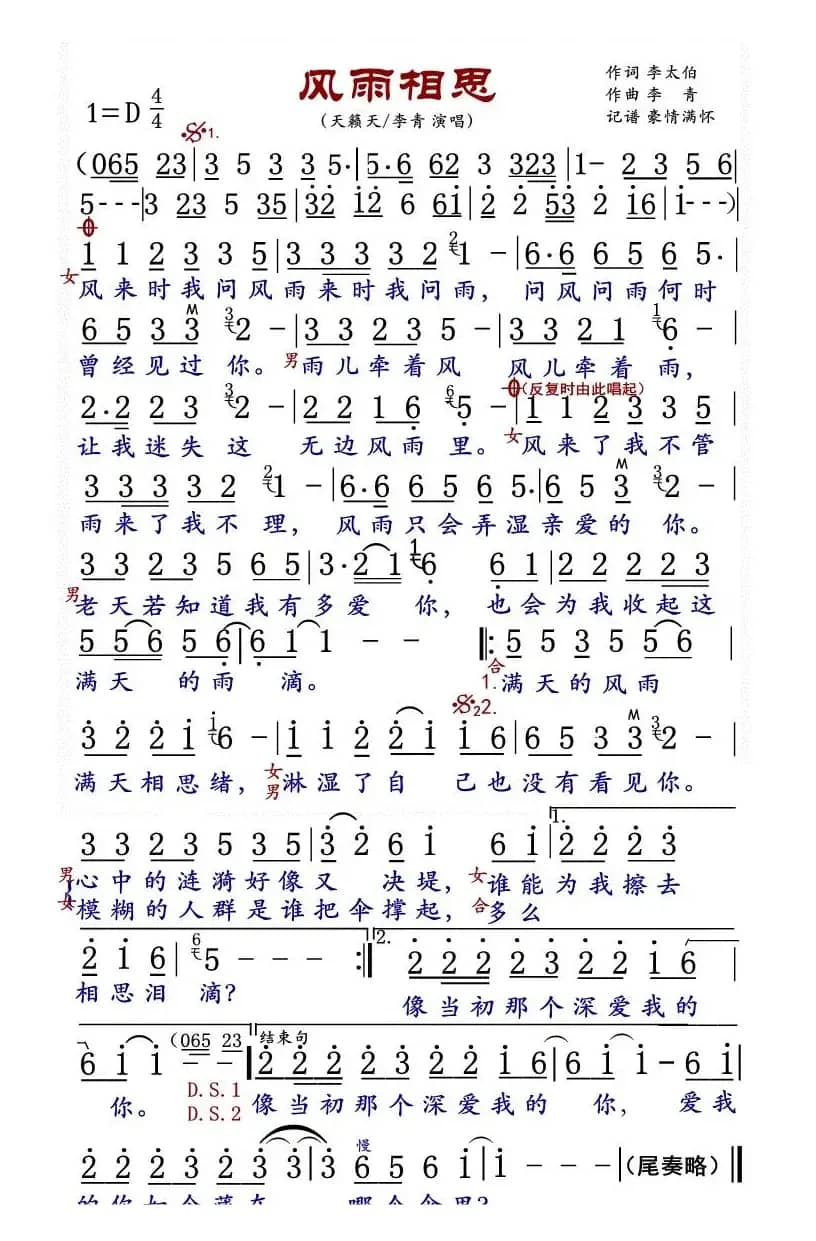 风雨相思
作词 李太伯
作曲 李 青
记谱 豪情满怀
(天籁天/李青 演唱)
1=D 4/4
1.
(065 23|3 5 3 5·|5·6 62 3 323|1- 2 3 5 6|
5---|3 23 5 35|32 12 6 61|2 2 53 2 16|1---)|
1 1 2 3 3 5|3 3 3 3 2 2 1 -|6·6 6 5 6 5·|
女 风来时我问风雨来时我问雨, 问风问雨何时
6 5 3 3 3 2 -|3 3 2 3 5 -|3 3 2 1 1 6 -|
曾经见过 你。男 雨儿牵着风 风儿牵着 雨,
(反复时由此唱起)
2·2 2 3 3 2 -|2 2 1 6 6 5 -|1 1 2 3 3 5|
让我迷失这 无边风雨 里。女 风来了我不管
3 3 3 3 2 2 1 -|6·6 6 6 5 6 5·|5·6 5 3 3 2 -|
雨来了我不 理, 风雨只会弄湿亲爱的 你。
3 3 2 3 5 6 5|3· 2 1 1 6 6 1|2 2 2 2 2 3|
男 老天若知道我有多爱 你, 也会为我收起这
5 5 6 5 6|6 1 1 - -‖: 5 5 3 5 5 6|
满天 的雨 滴。 合 1. 满天的风雨
2 2.
3 2 2 1 6 -|1 1 2 2 1 1 6|6 5 3 3 3 2 -|
满天相思绪, 女 男 淋湿了自 己也没有看见你。
1.
3 3 2 3 5 3 5|3 2 6 1 6 1|2 2 2 2|
男 心中的涟漪好像又 决堤, 女 谁能为我擦去
女 模糊的人群是谁把伞撑起, 合 多么
2.
2 1 6|6 5 - - :‖2 2 2 2 3 2 2 1 6|
相思泪 滴? 像当初那个深爱我的
(065 23 结束句
6 1 1 - -‖2 2 2 2 3 2 2 1 6|6 1 1 - 6 1|
你。 D.S.1 像当初那个深爱我的 你, 爱我
D.S.2
慢
2 2 2 3 2 2 3|3 6 5 6 1|1 - - -(尾奏略)‖